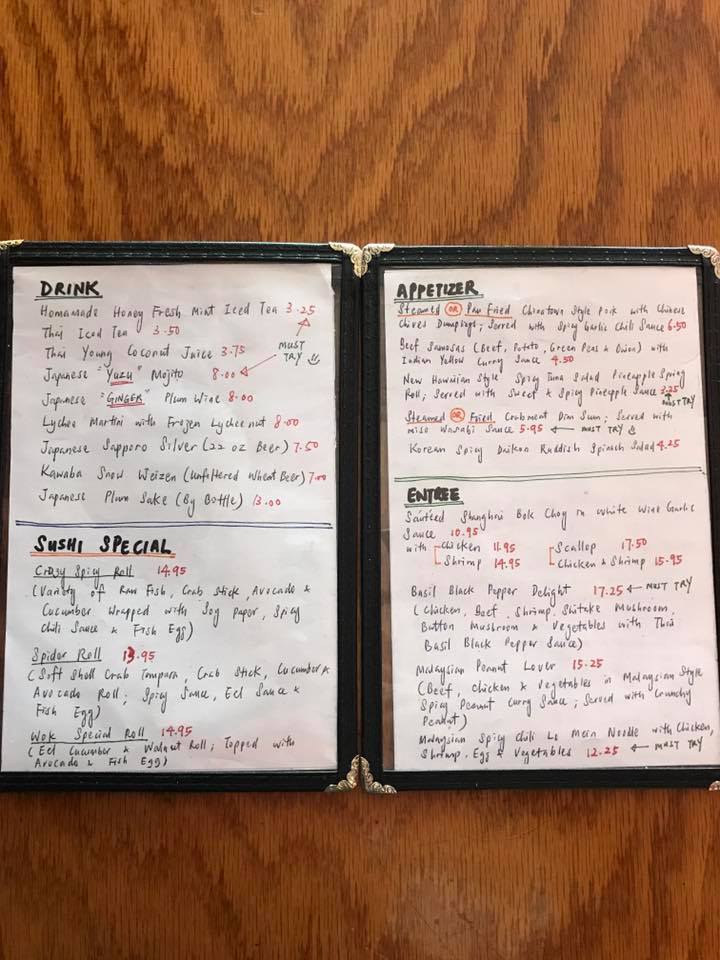 DRINK
Homamade Honey Fresh Mint Iced Tea 3.25
Thai Iced Tea 3.50
Thai Young Coconut Juice 3.75
MUST TRY
Japanese "YUZU" Mojito 8.00
Japanese "GINGER" Plum Wine 8.00
Lychee Martini with Frozen Lychee nut 8.00
Japanese Sapporo Silver (22 oz Beer) 7.50
Kawaba Snow Weizen (Unfiltered Wheat Beer) 7.00
Japanese Plum Sake (By Bottle) 13.00
SUSHI SPECIAL
Crazy Spicy Roll 14.95
(Variety of Raw Fish, Crab Stick, Avocado &
Cucumber Wrapped with Soy Paper, Spicy
Chili Sauce & Fish Egg)
Spider Roll 13.95
(Soft Shell Crab Tempura, Crab Stick, Cucumber &
Avocado Roll; Spicy Sauce, Eel Sauce &
Fish Egg)
Wok Special Roll 14.95
(Eel Cucumber & Walnut Roll; Topped with
Avocado & Fish Egg)
APPETIZER
Steamed OR Pan Fried Chinatown Style Pork with Chinese
Chives Dumplings; Served with Spicy Garlic Chili Sauce 6.50
Beef Samosas (Beef, Potato, Green Peas & Onion) with
Indian Yellow Curry Sauce 4.50
New Hawaiian Style Spicy Tuna Salad Pineapple Spring
Roll; Served with Sweet & Spicy Pineapple Sauce 3.25
MUST TRY
Steamed OR Fried Crabmeat Dim Sum; Served with
Miso Wasabi Sauce 5.95 ← MUST TRY
Korean Spicy Daikon Raddish Spinach Salad 4.25
ENTREE
Sautéed Shanghai Bok Choy in White Wine Garlic
Sauce 10.95
with Chicken 11.95 Scallop 17.50
Shrimp 14.95 Chicken & Shrimp 15.95
Basil Black Pepper Delight 17.25 ← MUST TRY
(Chicken, Beef, Shrimp, Shitake Mushroom,
Button Mushroom & Vegetables with Thai
Basil Black Pepper Sauce)
Malaysian Peanut Lover 15.25
(Beef, Chicken & Vegetables in Malaysian Style
Spicy Peanut Curry Sauce; Served with Crunchy
Peanut)
Malaysian Spicy Chili Lo Mein Noodle with Chicken,
Shrimp, Egg & Vegetables 12.25 ← MUST TRY